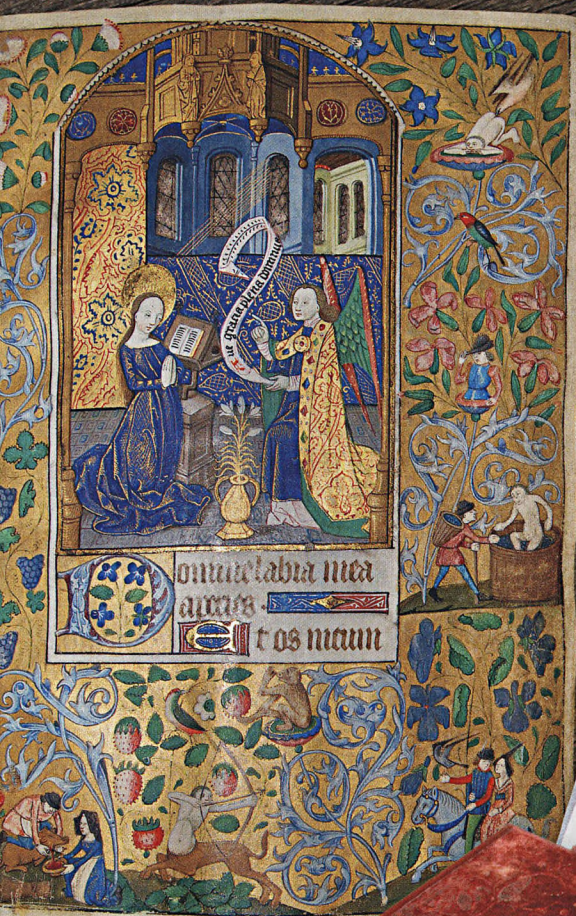 ue gracia plena dominus
Domine labia mea
aperies
Et os meum